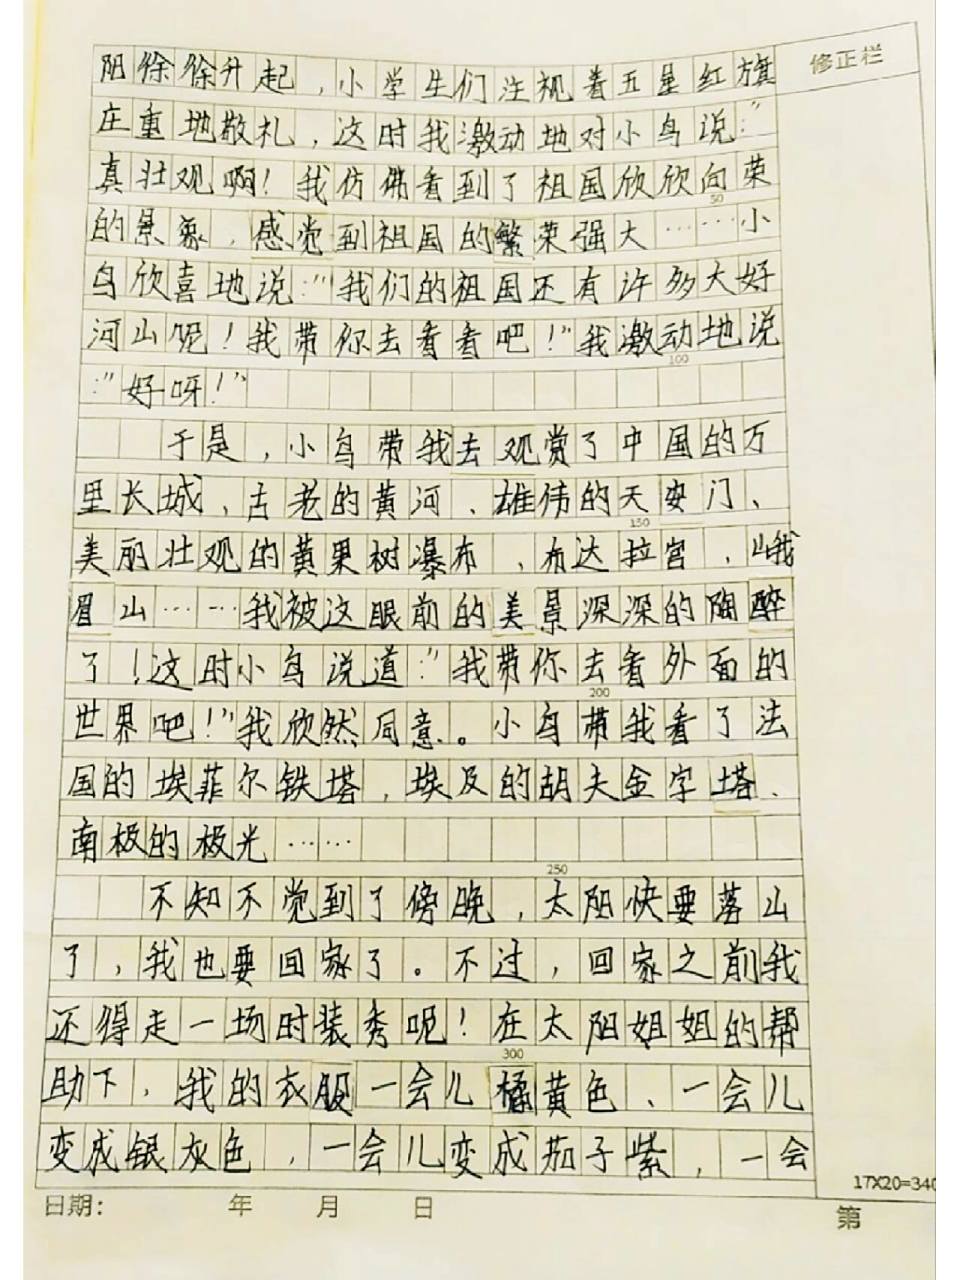 阳徐徐升起，小学生们注视着五星红旗
修正栏
庄重地敬礼，这时我激动地对小鸟说："
真壮观啊！我仿佛看到了祖国欣欣向荣
50
的景象，感觉到祖国的繁荣强大……小
鸟欣喜地说："我们的祖国还有许多大好
河山呢！我带你去看看吧！"我激动地说
100
："好呀！"
于是，小鸟带我去观赏了中国的万
里长城，古老的黄河、雄伟的天安门、
150
美丽壮观的黄果树瀑布、布达拉宫，峨
眉山……我被这眼前的美景深深的陶醉
了！这时小鸟说道："我带你去看外面的
200
世界吧！"我欣然同意。小鸟带我看了法
国的埃菲尔铁塔，埃及的胡夫金字塔、
南极的极光……
250
不知不觉到了傍晚，太阳快要落山
了，我也要回家了。不过，回家之前我
还得走一场时装秀呢！在太阳姐姐的帮
300
助下，我的衣服一会儿橘黄色、一会儿
变成银灰色，一会儿变成茄子紫，一会
17X20=340
日期： 年 月 日
第